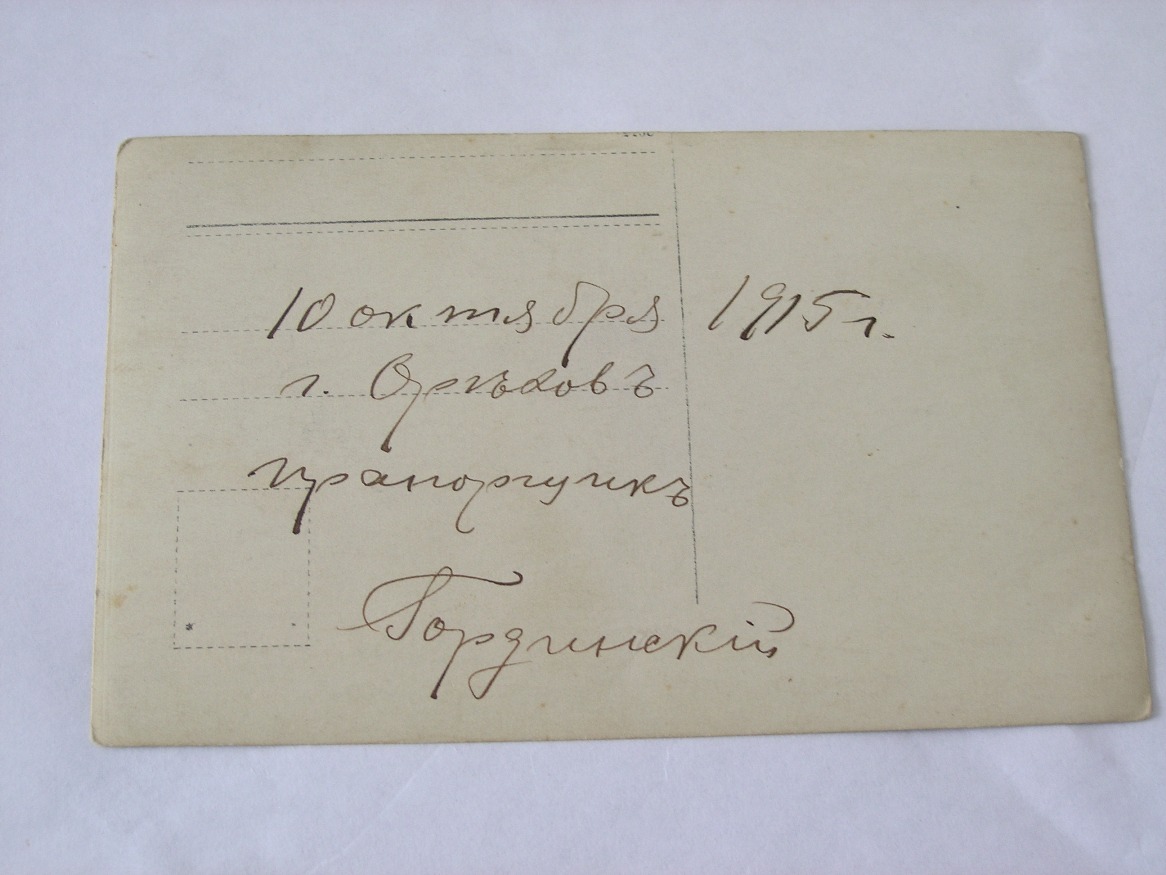 10 октября 1915 г.
г. Орѣховъ
прапорщикъ
Гординскій